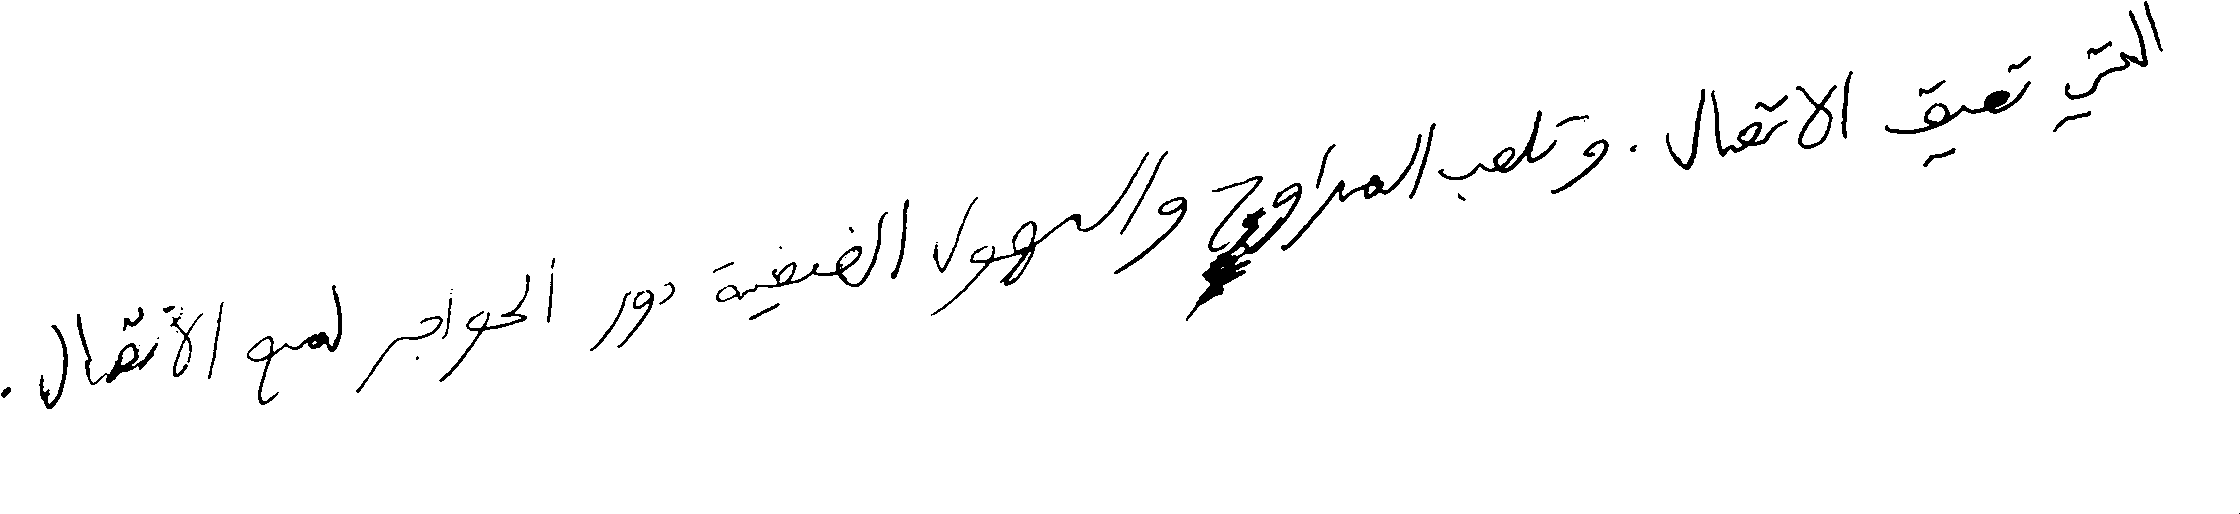 التي تعيق الاتصال . وتلعب المراوح والسهول الفيضية دور الحواجز لمنع الاتصال .